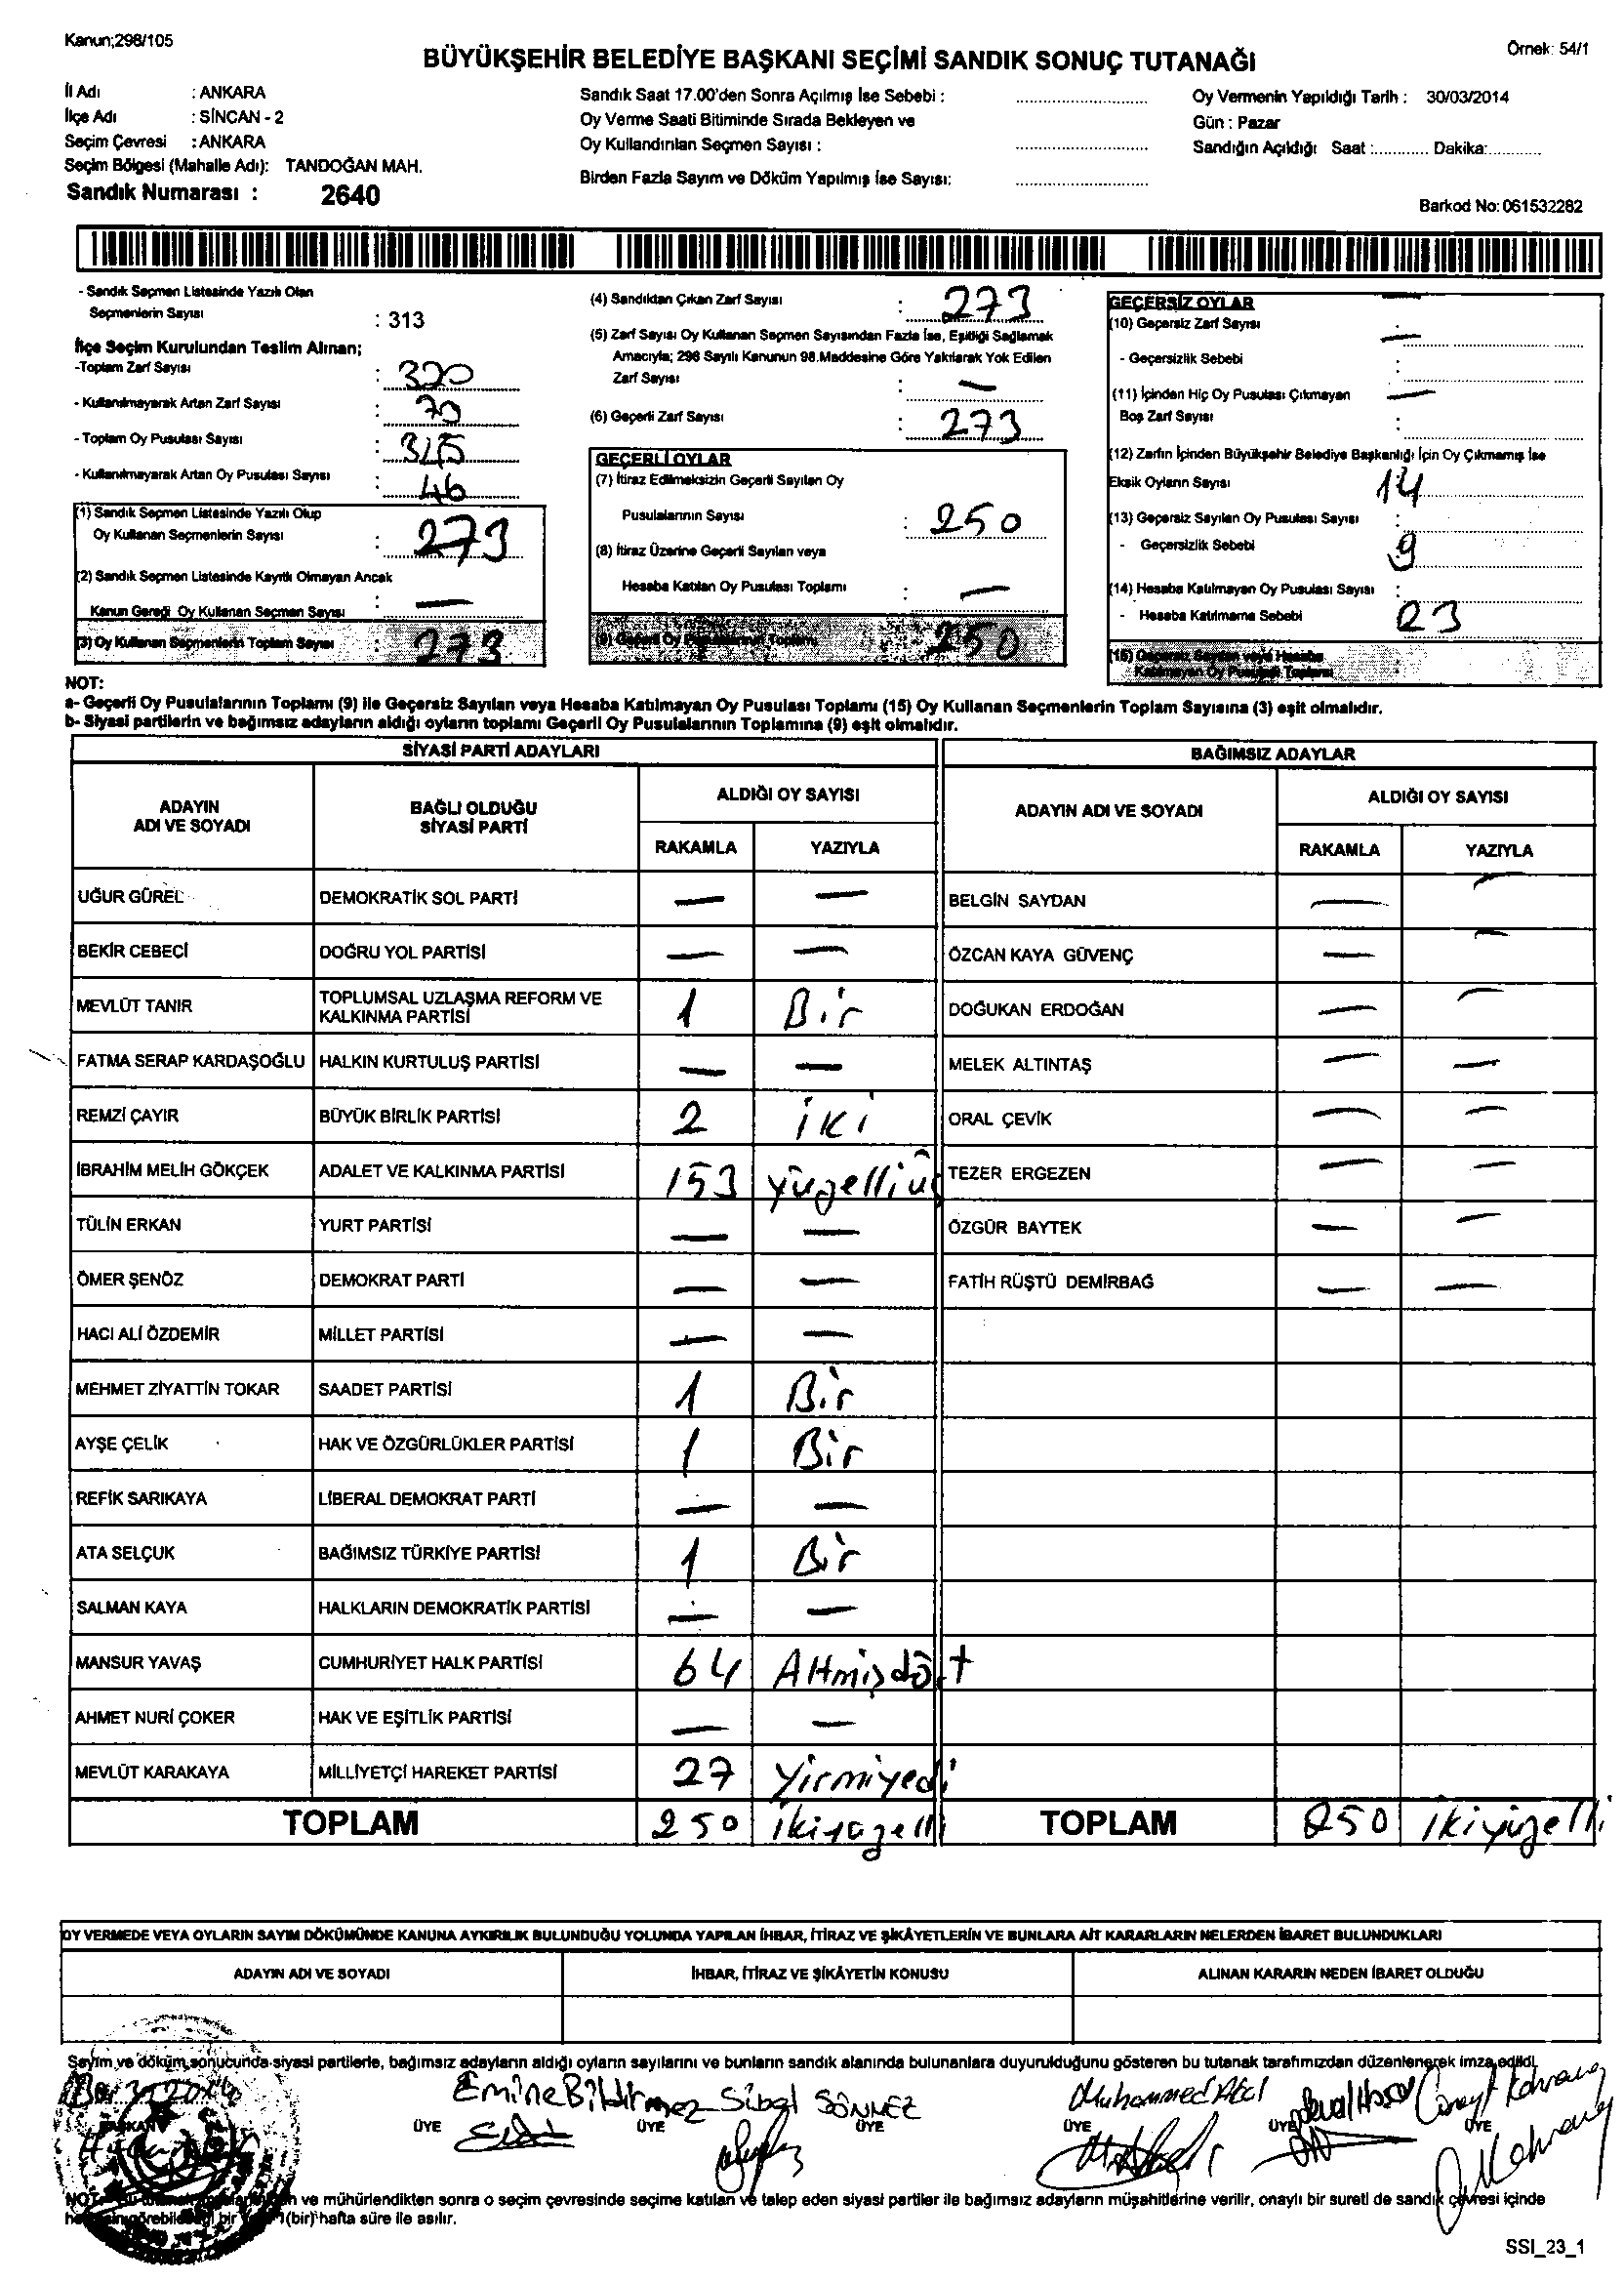 Kanun;298/105
Örnek: 54/1
BÜYÜKŞEHİR BELEDİYE BAŞKANI SEÇİMİ SANDIK SONUÇ TUTANAĞI
İl Adı : ANKARA
İlçe Adı : SİNCAN - 2
Seçim Çevresi : ANKARA
Seçim Bölgesi (Mahalle Adı): TANDOĞAN MAH.
Sandık Numarası : 2640
Sandık Saat 17.00'den Sonra Açılmış İse Sebebi :
Oy Verme Saati Bitiminde Sırada Bekleyen ve
Oy Kullandırılan Seçmen Sayısı :
Birden Fazla Sayım ve Döküm Yapılmış İse Sayısı:
Oy Vermenin Yapıldığı Tarih : 30/03/2014
Gün : Pazar
Sandığın Açıldığı Saat :........... Dakika:...........
Barkod No: 061532282
- Sandık Seçmen Listesinde Yazılı Olan
Seçmenlerin Sayısı : 313
İlçe Seçim Kurulundan Teslim Alınan;
-Toplam Zarf Sayısı : 320
- Kullanılmayarak Artan Zarf Sayısı :
- Toplam Oy Pusulası Sayısı :
- Kullanılmayarak Artan Oy Pusulası Sayısı : 46
(1) Sandık Seçmen Listesinde Yazılı Olup
Oy Kullanan Seçmenlerin Sayısı : 273
(2) Sandık Seçmen Listesinde Kayıtlı Olmayan Ancak
Kanun Gereği Oy Kullanan Seçmen Sayısı : —
(3) Oy Kullanan Seçmenlerin Toplam Sayısı : 273
(4) Sandıktan Çıkan Zarf Sayısı : 273
(5) Zarf Sayısı Oy Kullanan Seçmen Sayısından Fazla İse, Eşitliği Sağlamak
Amacıyla; 298 Sayılı Kanunun 98.Maddesine Göre Yakılarak Yok Edilen
Zarf Sayısı : —
(6) Geçerli Zarf Sayısı : 273
GEÇERLİ OYLAR
(7) İtiraz Edilmeksizin Geçerli Sayılan Oy
Pusulalarının Sayısı : 250
(8) İtiraz Üzerine Geçerli Sayılan veya
Hesaba Katılan Oy Pusulası Toplamı : —
(9) Geçerli Oy Pusulalarının Toplamı 250
GEÇERSİZ OYLAR —
(10) Geçersiz Zarf Sayısı : —
- Geçersizlik Sebebi :
(11) İçinden Hiç Oy Pusulası Çıkmayan —
Boş Zarf Sayısı :
(12) Zarfın İçinden Büyükşehir Belediye Başkanlığı İçin Oy Çıkmamış İse
Eksik Oyların Sayısı 14
(13) Geçersiz Sayılan Oy Pusulası Sayısı :
- Geçersizlik Sebebi 9
(14) Hesaba Katılmayan Oy Pusulası Sayısı :
- Hesaba Katılmama Sebebi 23
(15) Geçersiz Sayılan veya Hesaba
Katılmayan Oy Pusulası Toplamı :
NOT:
a- Geçerli Oy Pusulalarının Toplamı (9) ile Geçersiz Sayılan veya Hesaba Katılmayan Oy Pusulası Toplamı (15) Oy Kullanan Seçmenlerin Toplam Sayısına (3) eşit olmalıdır.
b- Siyasi partilerin ve bağımsız adayların aldığı oyların toplamı Geçerli Oy Pusulalarının Toplamına (9) eşit olmalıdır.
SİYASİ PARTİ ADAYLARI
ADAYIN ADI VE SOYADI BAĞLI OLDUĞU SİYASİ PARTİ ALDIĞI OY SAYISI
RAKAMLA YAZIYLA
UĞUR GÜREL DEMOKRATİK SOL PARTİ — —
BEKİR CEBECİ DOĞRU YOL PARTİSİ — —
MEVLÜT TANIR TOPLUMSAL UZLAŞMA REFORM VE KALKINMA PARTİSİ 1 Bir
FATMA SERAP KARDAŞOĞLU HALKIN KURTULUŞ PARTİSİ — —
REMZİ ÇAYIR BÜYÜK BİRLİK PARTİSİ 2 iki
İBRAHİM MELİH GÖKÇEK ADALET VE KALKINMA PARTİSİ 153 yüzelliüç
TÜLİN ERKAN YURT PARTİSİ — —
ÖMER ŞENÖZ DEMOKRAT PARTİ — —
HACI ALİ ÖZDEMİR MİLLET PARTİSİ — —
MEHMET ZİYATTİN TOKAR SAADET PARTİSİ 1 Bir
AYŞE ÇELİK HAK VE ÖZGÜRLÜKLER PARTİSİ 1 Bir
REFİK SARIKAYA LİBERAL DEMOKRAT PARTİ — —
ATA SELÇUK BAĞIMSIZ TÜRKİYE PARTİSİ 1 Bir
SALMAN KAYA HALKLARIN DEMOKRATİK PARTİSİ — —
MANSUR YAVAŞ CUMHURİYET HALK PARTİSİ 64 Altmışdört
AHMET NURİ ÇOKER HAK VE EŞİTLİK PARTİSİ — —
MEVLÜT KARAKAYA MİLLİYETÇİ HAREKET PARTİSİ 27 Yirmiyedi
TOPLAM 250 ikiyüzelli
BAĞIMSIZ ADAYLAR
ADAYIN ADI VE SOYADI ALDIĞI OY SAYISI
RAKAMLA YAZIYLA
BELGİN SAYDAN — —
ÖZCAN KAYA GÜVENÇ — —
DOĞUKAN ERDOĞAN — —
MELEK ALTINTAŞ — —
ORAL ÇEVİK — —
TEZER ERGEZEN — —
ÖZGÜR BAYTEK — —
FATİH RÜŞTÜ DEMİRBAĞ — —
TOPLAM 250 ikiyüzelli
OY VERMEDE VEYA OYLARIN SAYIM DÖKÜMÜNDE KANUNA AYKIRILIK BULUNDUĞU YOLUNDA YAPILAN İHBAR, İTİRAZ VE ŞİKÂYETLERİN VE BUNLARA AİT KARARLARIN NELERDEN İBARET BULUNDUKLARI
ADAYIN ADI VE SOYADI İHBAR, İTİRAZ VE ŞİKÂYETİN KONUSU ALINAN KARARIN NEDEN İBARET OLDUĞU
Sayım ve döküm sonucunda siyasi partilerle, bağımsız adayların aldığı oyların sayılarını ve bunların sandık alanında bulunanlara duyurulduğunu gösteren bu tutanak tarafımızdan düzenlenerek imza edildi.
Emine Sibel SÖNMEZ Muhammed
BAŞKAN ÜYE ÜYE ÜYE ÜYE ÜYE ÜYE
NOT: ve mühürlendikten sonra o seçim çevresinde seçime katılan ve talep eden siyasi partiler ile bağımsız adayların müşahitlerine verilir, onaylı bir sureti de sandık çevresi içinde
bir 1(bir) hafta süre ile asılır.
SSI_23_1